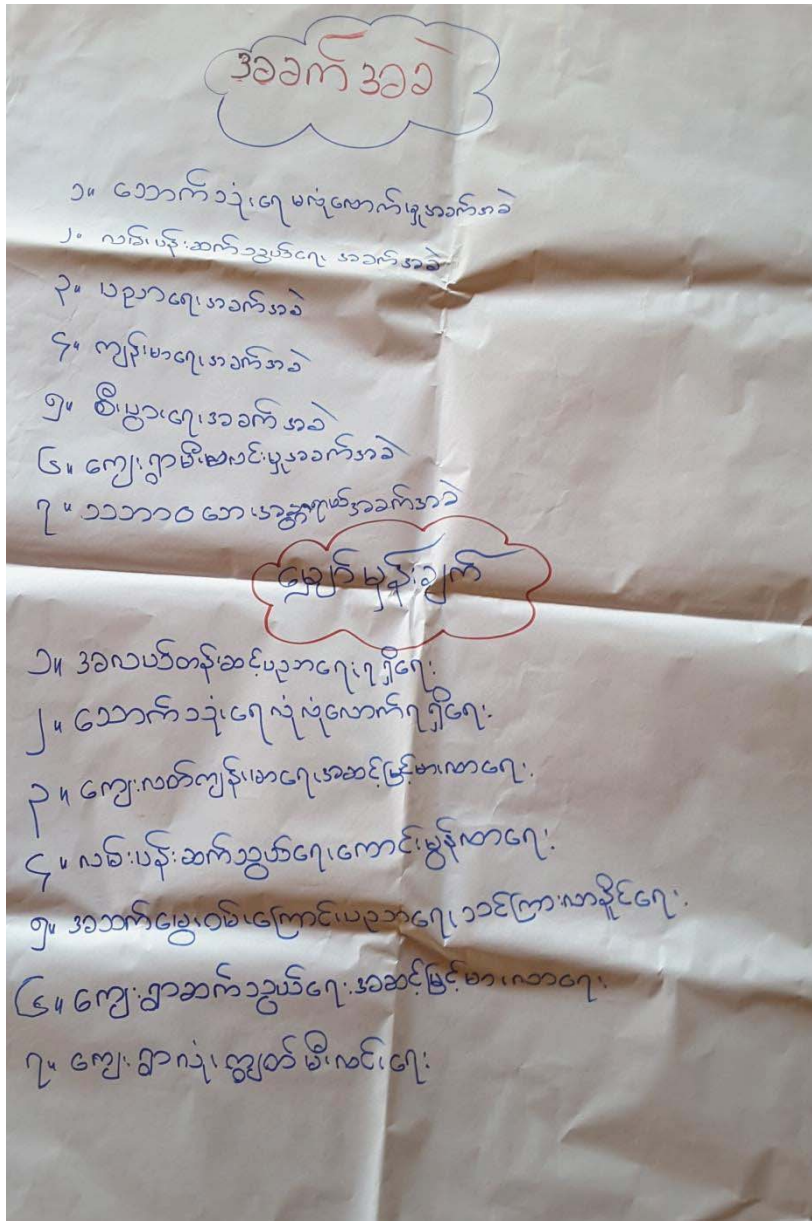 အခက်အခဲ
၁။ သောက်သုံးရေမလုံလောက်မှုအခက်အခဲ
၂။ လမ်းပန်းဆက်သွယ်ရေး အခက်အခဲ
၃။ ပညာရေးအခက်အခဲ
၄။ ကျန်းမာရေးအခက်အခဲ
၅။ စီးပွားရေးအခက်အခဲ
၆။ ကျေးရွာမီးလင်းမှုအခက်အခဲ
၇။ သဘာဝဘေးအန္တရာယ်အခက်အခဲ
မျှော်မှန်းချက်
၁။ အလယ်တန်းဆင့်ပညာရေးရရှိရေး
၂။ သောက်သုံးရေလုံလုံလောက်ရရှိရေး
၃။ ကျေးလတ်ကျန်းမာရေးအဆင့်မြင့်မားလာရေး
၄။ လမ်းပန်းဆက်သွယ်ရေးကောင်းမွန်လာရေး
၅။ အသက်မွေးဝမ်းကြောင်းပညာရေးသင်ကြားလာနိုင်ရေး
၆။ ကျေးရွာဆက်သွယ်ရေးအဆင့်မြင့်မားလာရေး
၇။ ကျေးရွာလုံးကျွတ်မီးလင်းရေး